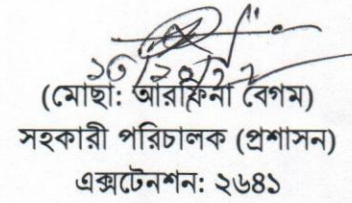 (মোছা: আরফিনা বেগম)
সহকারী পরিচালক (প্রশাসন)
এক্সটেনশন: ২৬৪১